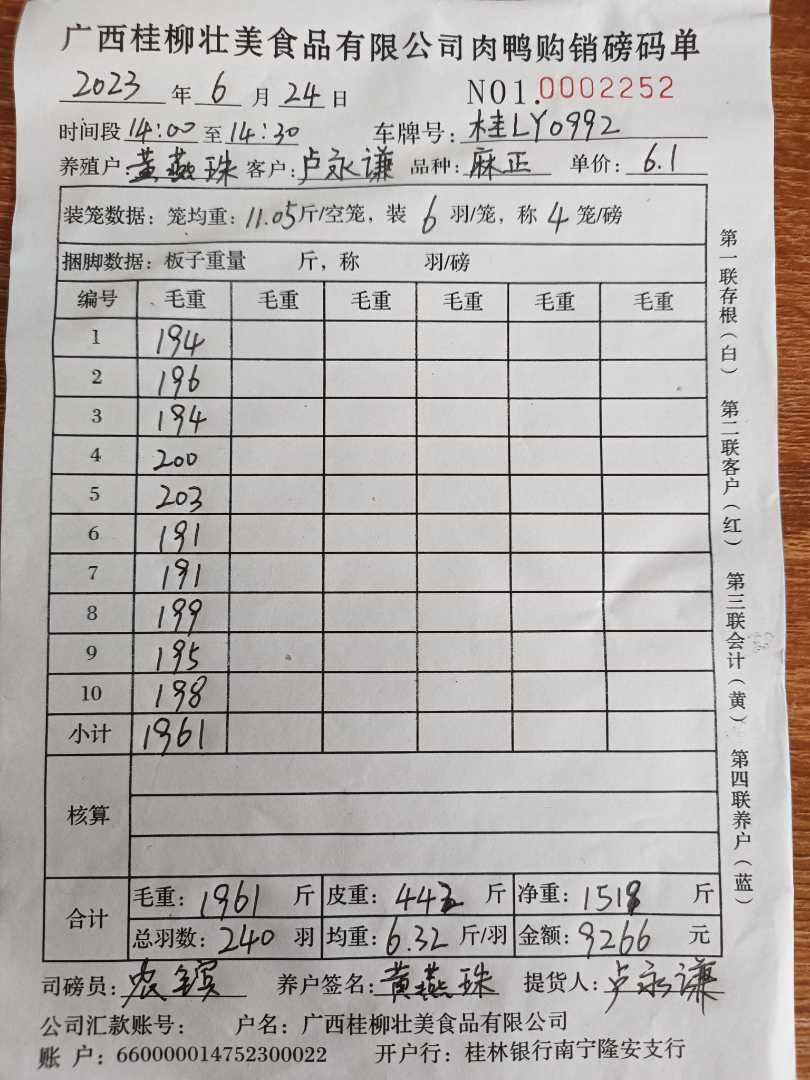 广西桂柳壮美食品有限公司肉鸭购销磅码单
2023 年 6 月 24 日 NO1.0002252
时间段 14:00 至 14:30 车牌号: 桂LY0992
养殖户: 黄燕珠 客户: 卢永谦 品种: 麻正 单价: 6.1
装笼数据: 笼均重: 11.05 斤/空笼, 装 6 羽/笼, 称 4 笼/磅
捆脚数据: 板子重量 斤, 称 羽/磅
编号 毛重 毛重 毛重 毛重 毛重 毛重
1 194
2 196
3 194
4 200
5 203
6 191
7 191
8 199
9 195
10 198
小计 1961
核算
合计 毛重: 1961 斤 皮重: 442 斤 净重: 1519 斤
总羽数: 240 羽 均重: 6.32 斤/羽 金额: 9266 元
司磅员: 农 养户签名: 黄燕珠 提货人: 卢永谦
公司汇款账号: 户名: 广西桂柳壮美食品有限公司
账户: 660000014752300022 开户行: 桂林银行南宁隆安支行
第一联存根(白) 第二联客户(红) 第三联会计(黄) 第四联养户(蓝)